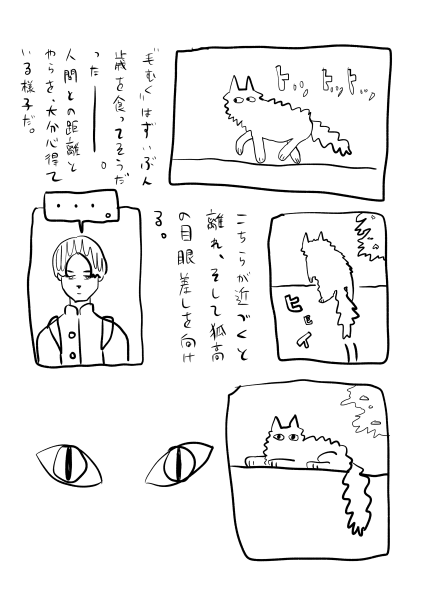 トッ、トットッ、
毛むくじはずいぶん
歳を食ってそうだ
った――。
人間との距離と
やらを、大分心得て
いる様子だ。
ヒョイ
こちらが近づくと
離れ、そして孤高
の目眼差しを向け
る。
・・・。